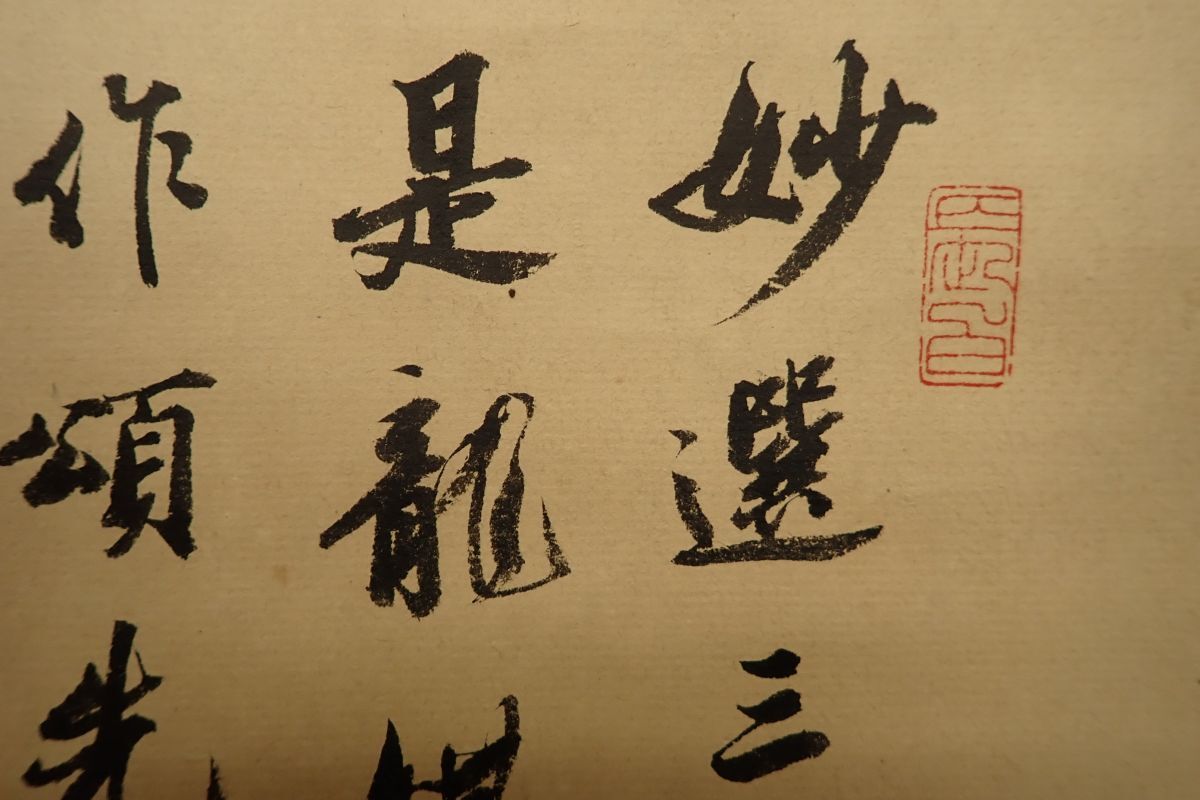 妙選三
是龍
作頌先